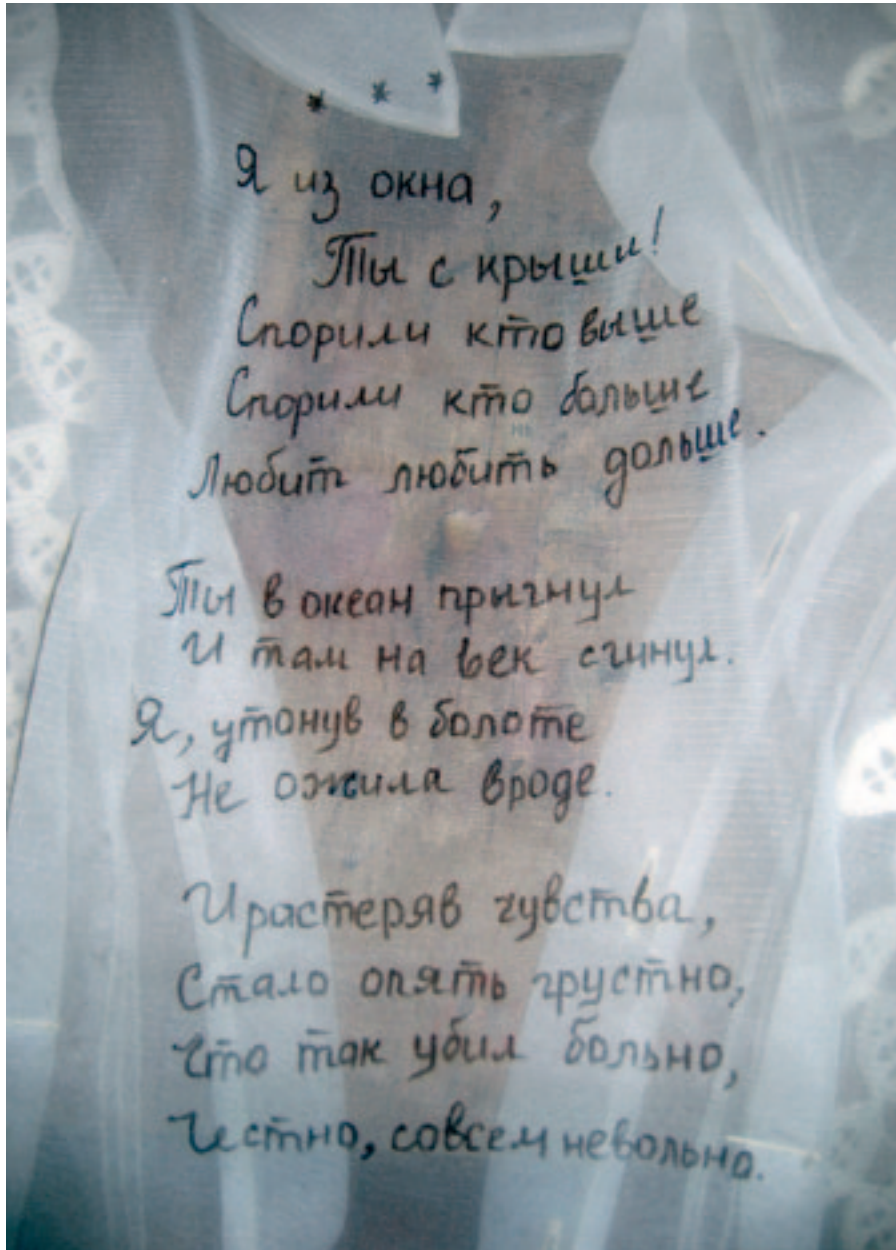 * * *
Я из окна,
Ты с крыши!
Спорили кто выше
Спорили кто больше
Любит любить дольше.
Ты в океан прыгнул
И там на век сгинул.
Я, утонув в болоте
Не ожила вроде.
И растеряв чувства,
Стало опять грустно,
Что так убил больно,
Честно, совсем невольно.